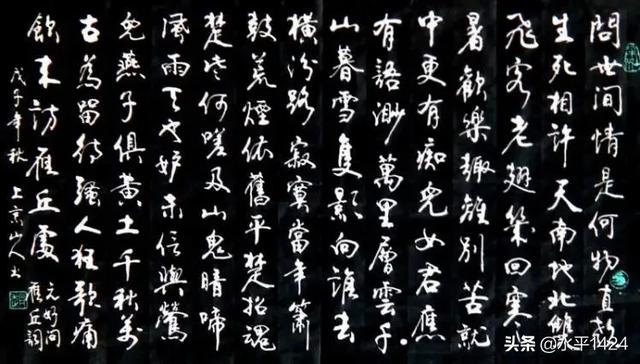 問世间情是何物直教
生死相許天南地北雙
飛客老翅幾回寒
暑歡樂趣離別苦就
中更有痴兒女君應
有語渺萬里層雲千
山暮雪隻影向誰去
橫汾路寂寞當年簫
鼓荒煙依舊平楚招魂
楚些何嗟及山鬼暗啼
風雨天也妒未信與鶯
兒燕子俱黃土千秋萬
古為留待騷人狂歌痛
飲来訪雁丘處
元好问
雁丘詞
戊子年秋上京山人书
头条 @永平1424